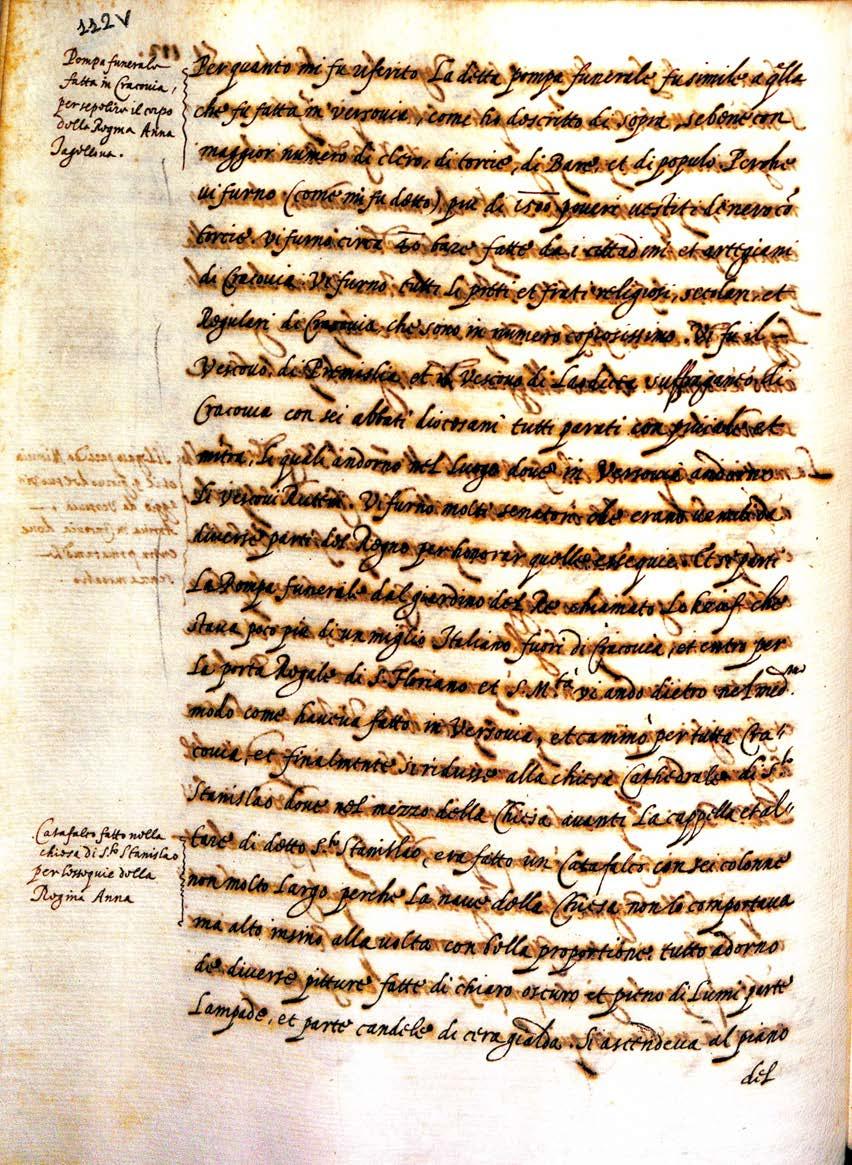 112v
Pompa funerale
fatta in Cracovia,
per sepelire il corpo
della Regina Anna
Jagellona.
Per quanto mi fu riferito La detta pompa funerale fu simile a q̃lla
che fu fatta in versovia, come ho descritto di sopra, se bene con
maggior numero di clero, di torcie, di Bare, et di populo Perche
vi furno (come mi fu detto) piu di 1500 poveri vestiti di nero cõ
torcie. vi furno circa 40 bare fatte da i cittadini et artegiani
di Cracovia. Vi furno tutti li preti et frati religiosi, secolari, et
Regulari di Cracovia, che sono in numero copiosissimo. Vi fu il
Vescovo di Premislia et il vescovo di Laodicea suffraganeo di
Cracovia con sei abbati diocesani tutti parati con piviale et
mitra, li quali andorno nel luogo dove in Versovia andorno
li vescovi Ruteni. Vi furno molti senatori che erano venuti da
diverse parti del Regno per honorar quelle essequie. Et se parti
La Pompa funerale dal giardino del Re chiamato Lobzief che
stava poco piu di un miglio Italiano fuori di Cracovia, et entro per
la porta Regale di S. Floriano et S. M.tà vi ando dietro nel med.mo
modo come haveva fatto in Versovia, et caminò per tutta Cra=
covia, et finalmente si ridusse alla chiesa Cathedrale di S.to
Stanislao dove nel mezzo della Chiesa avanti La cappella et al=
tare di detto S.to Stanislao, era fatto un Catafalco con sei colonne
non molto Largo perche La nave della Chiesa non lo comportava
ma alto insino alla volta con bella proportione, tutto adorno
de diverse pitture fatte di chiaro oscuro et pieno di Lumi parte
Lampade, et parte candele di cera gialda. Si ascendeva al piano
del
Catafalco fatto nella
chiesa di S.to Stanislao
per l'essequie della
Regina Anna